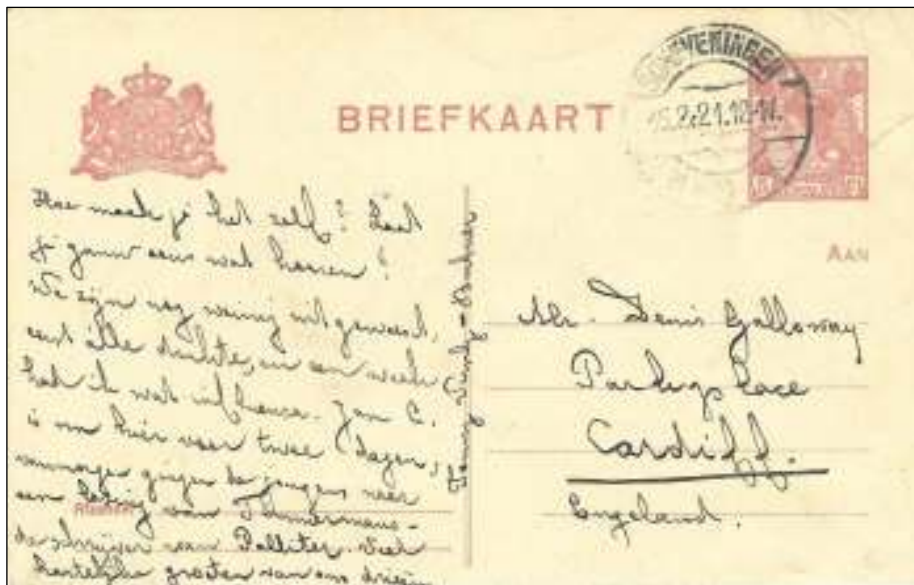 BRIEFKAART
SCHEVENINGEN
2.21.
AAN
Hoe maak je het zelf? Laat
je gauw eens wat hooren?
We zijn nog weinig uitgeweest,
eerst alle drukte, en een week
had ik wat influenza. Jan C.
is nu hier voor twee dagen,
vanmorgen gingen de jongens naar
een lezing van Timmermans-
de schrijver van Pallieter. Veel
hartelijke groeten van ons drieën
Fanny
Mr. Denis Galloway
Park place
Cardiff.
Engeland.